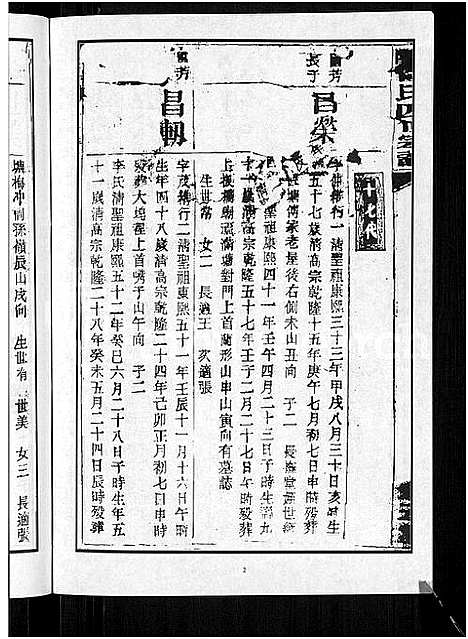 氏四修宗譜
十七代
芳長子
昌榮
行一清聖祖康熙三十三年甲戌八月三十日亥時生
五十七歲清高宗乾隆十五年庚午七月初七日申時殁葬
老屋後右側未山丑向 子二 長
聖祖康熙四十一年壬午四月二十三日子時生壽九
十一歲清高宗乾隆五十七年壬子二月二十四日申時殁葬
上 塘對門上首蘭形山申山寅向有墓誌
生世常 女二 長適王 次適張
芳
昌
字茂 行二清聖祖康熙五十一年壬辰十一月十六日午時
生年四十八歲清高宗乾隆二十四年己卯正月初七日午時
殁葬大塢 上首嘴子山午向 子二
李氏清聖祖康熙五十二年癸巳六月二十八日子時生年五
十一歲清高宗乾隆二十八年癸未五月二十四日辰時殁葬
塘梅冲南孫嶺辰山戌向 生世有 世美 女三 長適張
2